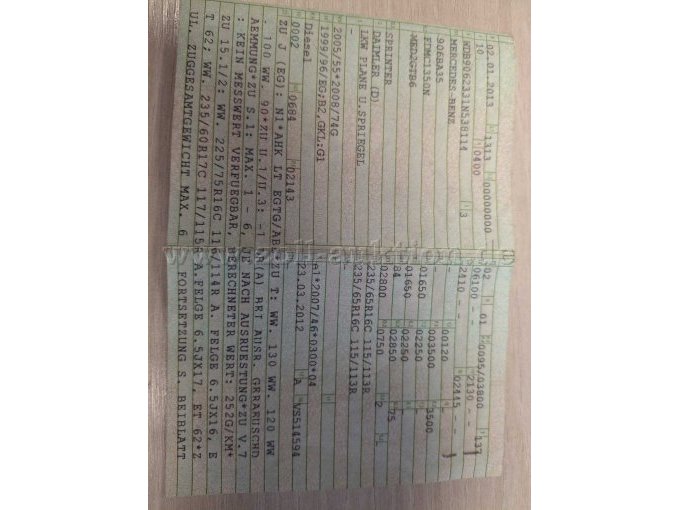 02.01.2013 1313 00000000 02 01 0095/03800 137
10 0400 06100 - - 2130 - -
WDB9062331N538114 3 2410 - - 02445 - -
MERCEDES-BENZ
906BA35 - 00120
FDMC1350N - 003500 3500
MED2GTB6 01650 02250
SPRINTER 01650 02250
DAIMLER (D) 84 02850 75
LKW PLANE U.SPRIEGEL 02800 0750 2
- 235/65R16C 115/113R
235/65R16C 115/113R
2005/55*2008/74G
1999/96/EG;B2,GKL:G1 e1*2007/46*0300*04
Diesel 23.03.2012 A VS514594
0002 0684 02143
ZU J (EG): N1*AHK LT EGTG/ABE ZU T: WW. 130 WW. 120 WW
. 100 WW. 90*ZU U.1/U.3: -1 (A) BEI AUSR. GERAEUSCHD
AEMMUNG*ZU S.1: MAX. 1 - 6, JE NACH AUSRUESTUNG*ZU V.7
: KEIN MESSWERT VERFUEGBAR, BERECHNETER WERT: 252G/KM*
ZU 15.1/2: WW. 225/75R16C 116/114R A. FELGE 6.5JX16, E
T 62: WW. 235/60R17C 117/115R A.FELGE 6.5JX17, ET 62*Z
UL. ZUGGESAMTGEWICHT MAX. 6 FORTSETZUNG S. BEIBLATT
www.zoll-auktion.de